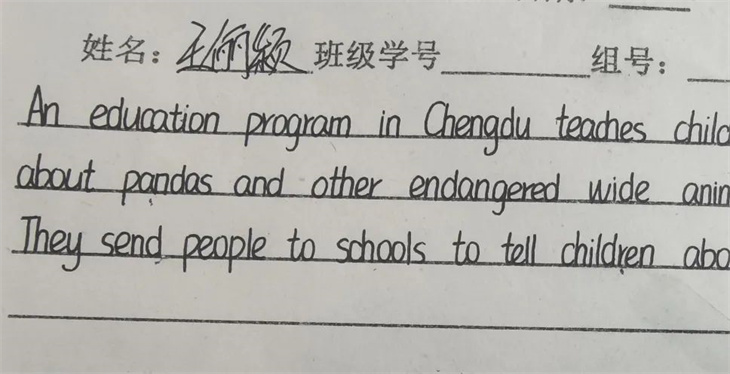 姓名：王俐颖 班级学号 组号：
An education program in Chengdu teaches chilc
about pandas and other endangered wide anin
They send people to schools to tell children abo